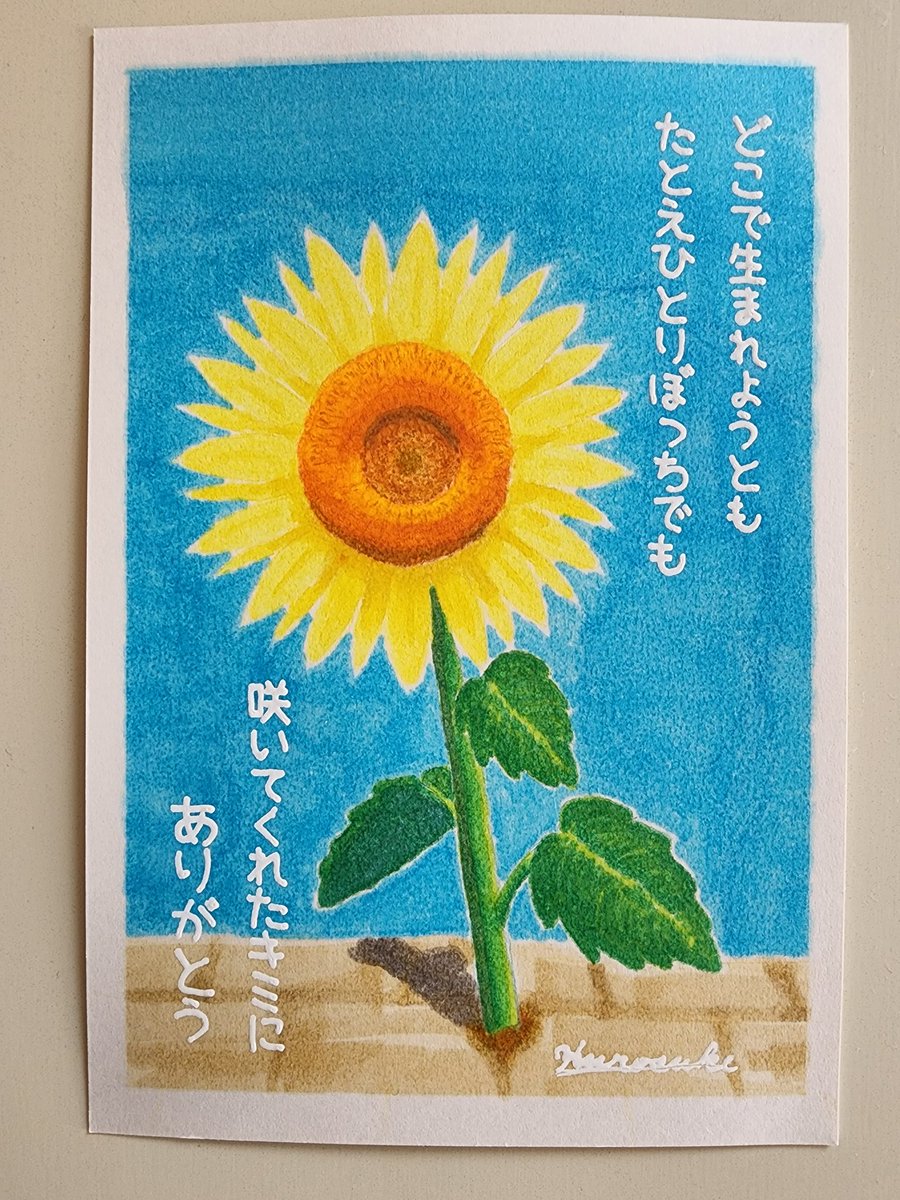 どこで生まれようとも
たとえひとりぼっちでも
咲いてくれたキミに
ありがとう
Kurosuke